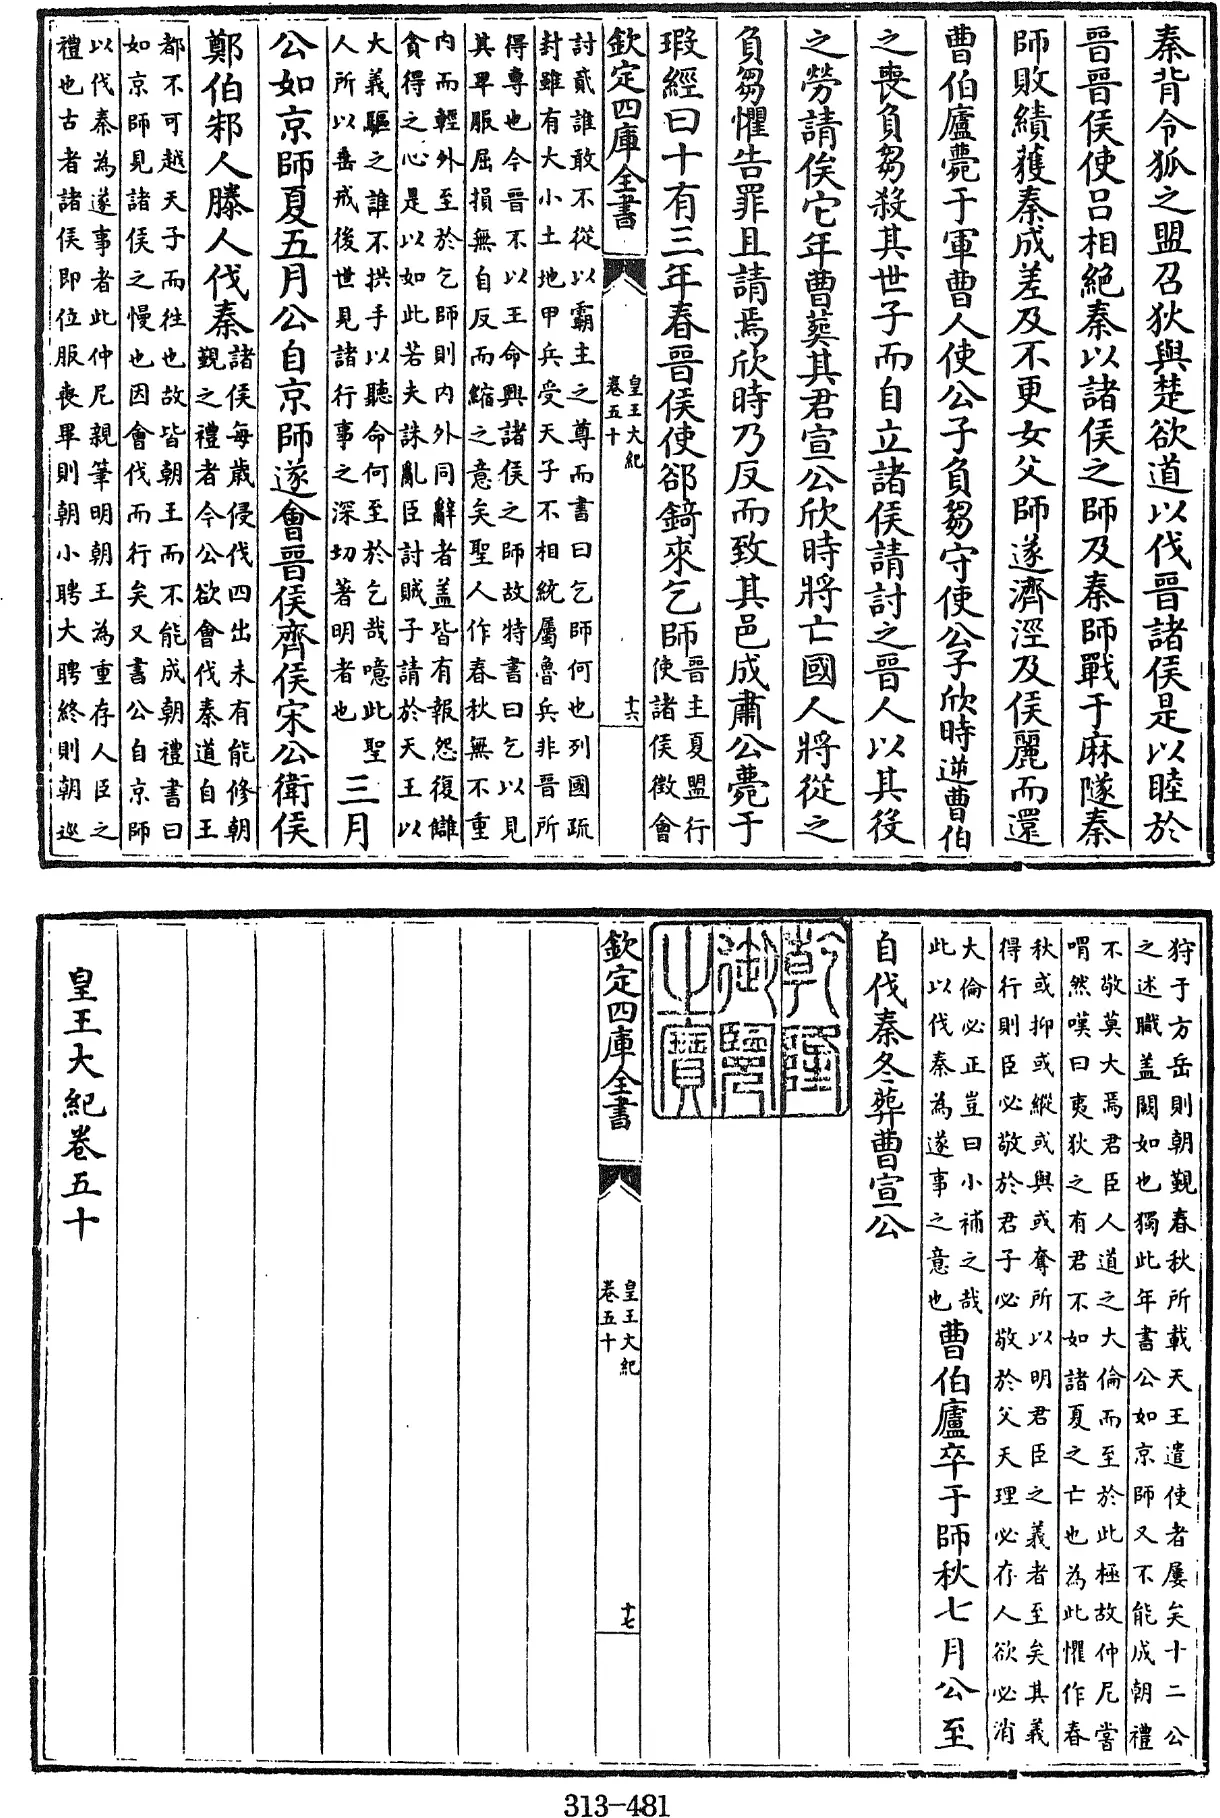 秦背令狐之盟召狄與楚欲道以伐晉諸侯是以睦於
晉晉侯使呂相絕秦以諸侯之師及秦師戰于麻隧秦
師敗績獲秦成差及不更女父師遂濟涇及侯麗而還
曹伯廬薨于軍曹人使公子負芻守使公子欣時逆曹伯
之喪負芻殺其世子而自立諸侯請討之晉人以其役
之勞請俟它年曹葬其君宣公欣時將亡國人將從之
負芻懼告罪且請焉欣時乃反而致其邑成肅公薨于
瑕經曰十有三年春晉侯使郤錡來乞師
晉主夏盟行
使諸侯徵會
欽定四庫全書
皇王大紀
卷五十
十六
討貳誰敢不從以霸主之尊而書曰乞師何也列國疏
封雖有大小土地甲兵受天子不相統屬魯兵非晉所
得專也今晉不以王命興諸侯之師故特書曰乞以見
其卑服屈損無自反而縮之意矣聖人作春秋無不重
内而輕外至於乞師則内外同辭者盖皆有報怨復讎
貪得之心是以如此若夫誅亂臣討賊子請於天王以
大義驅之誰不拱手以聽命何至於乞哉噫此聖
人所以垂戒後世見諸行事之深切著明者也
三月
公如京師夏五月公自京師遂會晉侯齊侯宋公衛侯
鄭伯邾人滕人伐秦
諸侯每歲侵伐四出未有能修朝
覲之禮者今公欲會伐秦道自王
都不可越天子而往也故皆朝王而不能成朝禮書曰
如京師見諸侯之慢也因會伐而行矣又書公自京師
以伐秦為遂事者此仲尼親筆明朝王為重存人臣之
禮也古者諸侯即位服喪畢則朝小聘大聘終則朝巡
狩于方岳則朝覲春秋所載天王遣使者屢矣十二公
之述職盖闕如也獨此年書公如京師又不能成朝禮
不敬莫大焉君臣人道之大倫而至於此極故仲尼嘗
喟然嘆曰夷狄之有君不如諸夏之亡也為此懼作春
秋或抑或縱或與或奪所以明君臣之義者至矣其義
得行則臣必敬於君子必敬於父天理必存人欲必消
大倫必正豈曰小補之哉
此以伐秦為遂事之意也
曹伯廬卒于師秋七月公至
自伐秦冬葬曹宣公
乾隆
御覽
之寶
欽定四庫全書
皇王大紀
卷五十
十七
皇王大紀卷五十
313-481